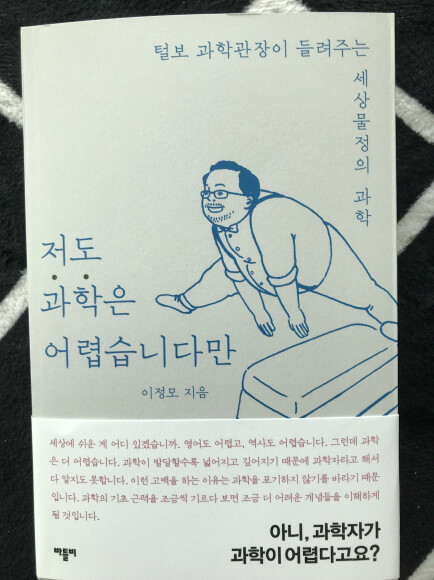 털보 과학관장이 들려주는
세상물정의 과학
저도
과학은
어렵습니다만
이정모 지음
세상에 쉬운 게 어디 있겠습니까. 영어도 어렵고, 역사도 어렵습니다. 그런데 과학
은 더 어렵습니다. 과학이 발달할수록 넓어지고 깊어지기 때문에 과학자라고 해서
다 알지도 못합니다. 이런 고백을 하는 이유는 과학을 포기하지 않기를 바라기 때문
입니다. 과학의 기초 근력을 조금씩 기르다 보면 조금 더 어려운 개념들을 이해하게
될 것입니다.
아니, 과학자가
과학이 어렵다고요?
바틀비